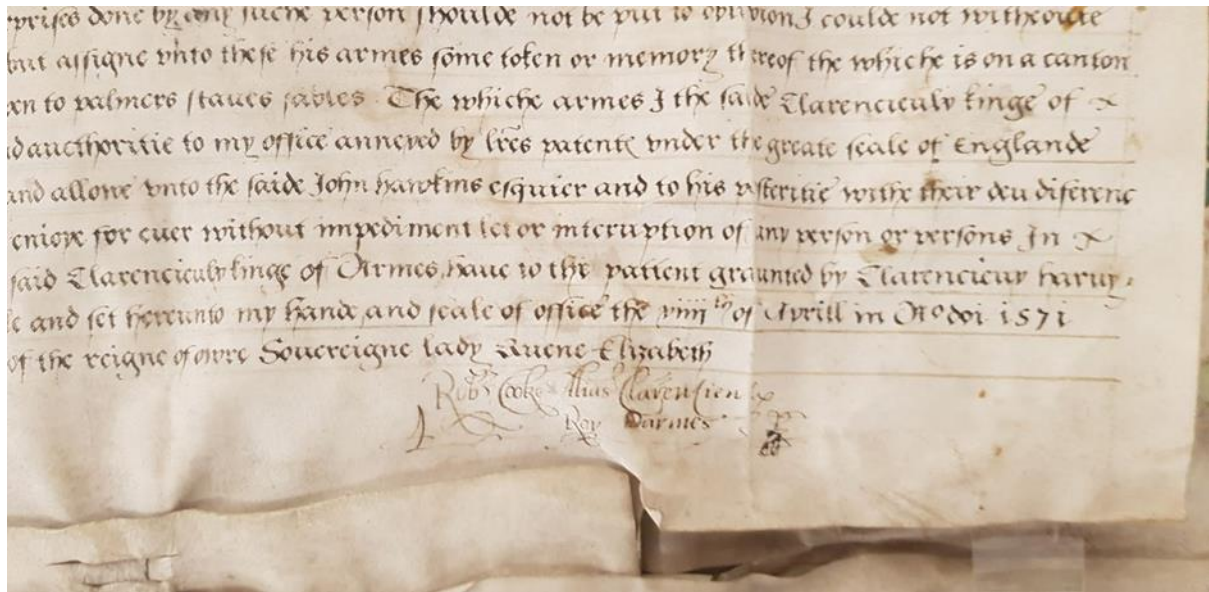 prises done by any suche person shoulde not be put to oblivion I coulde not withoute
but assigne vnto these his armes some token or memory thereof the whiche is on a canton
en to palmers staues sables. The whiche armes I the saide Clarencieulx kinge of
d aucthoritie to my office annexed by lres patente vnder the greate seale of Englande
and allowe vnto the saide John hawkins esquier and to his posteritie withe their deu diferenc
enioye for euer without impediment let or interuption of any person or persons In
said Clarencieulx kinge of Armes, haue to the patent graunted by Clarencieux haruy
e and set hereunto my hande and seale of office the viiiith of Aprill in Ano doi 1571
of the reigne of owre Souereigne lady Quene Elizabeth
Robt Cooke Alias Clarencieulx
Roy Darmes